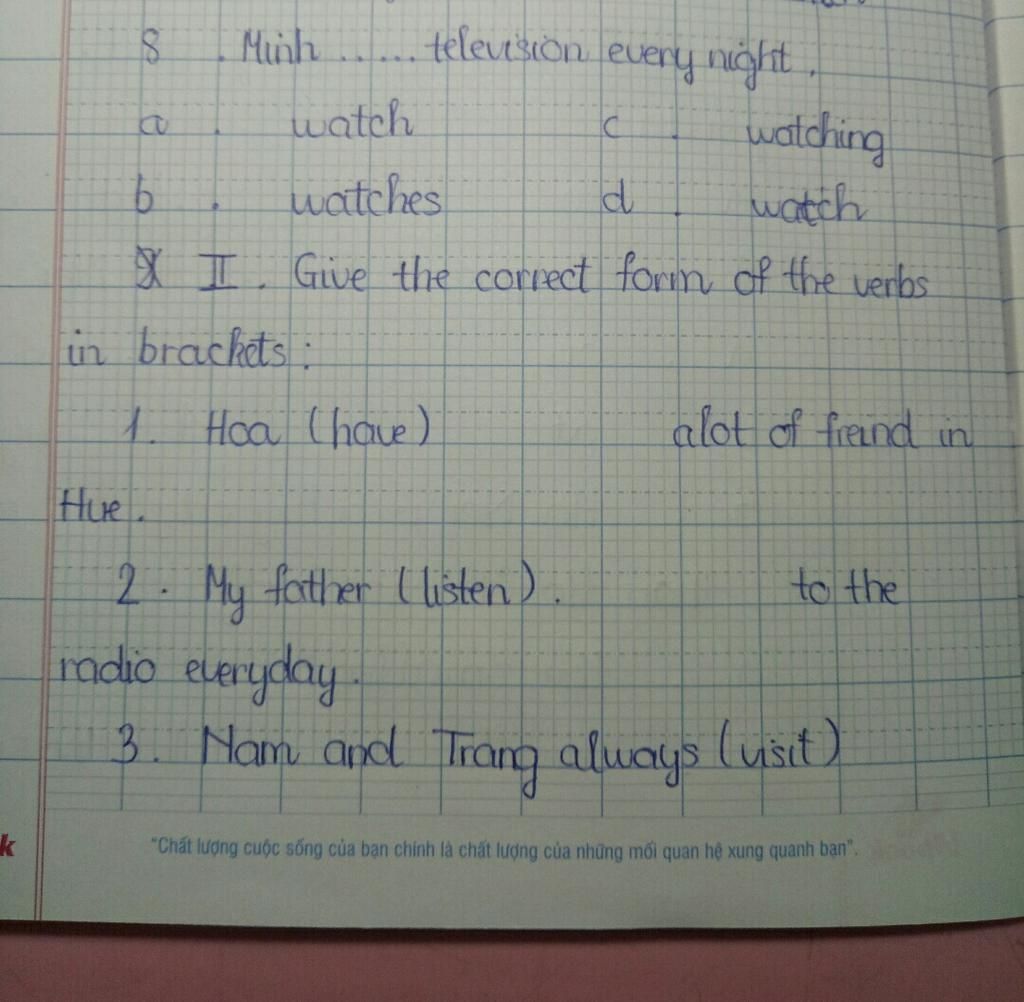 8 . Minh ...... television every night.
a . watch c . watching
b . watches d . watch
II. Give the correct form of the verbs
in brackets:
1. Hoa (have) alot of freind in
Hue.
2. My father (listen). to the
radio everyday.
3. Nam and Trang always (visit)
k
"Chất lượng cuộc sống của bạn chính là chất lượng của những mối quan hệ xung quanh bạn".